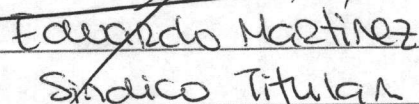 Eduardo Martinez
Sindico Titular